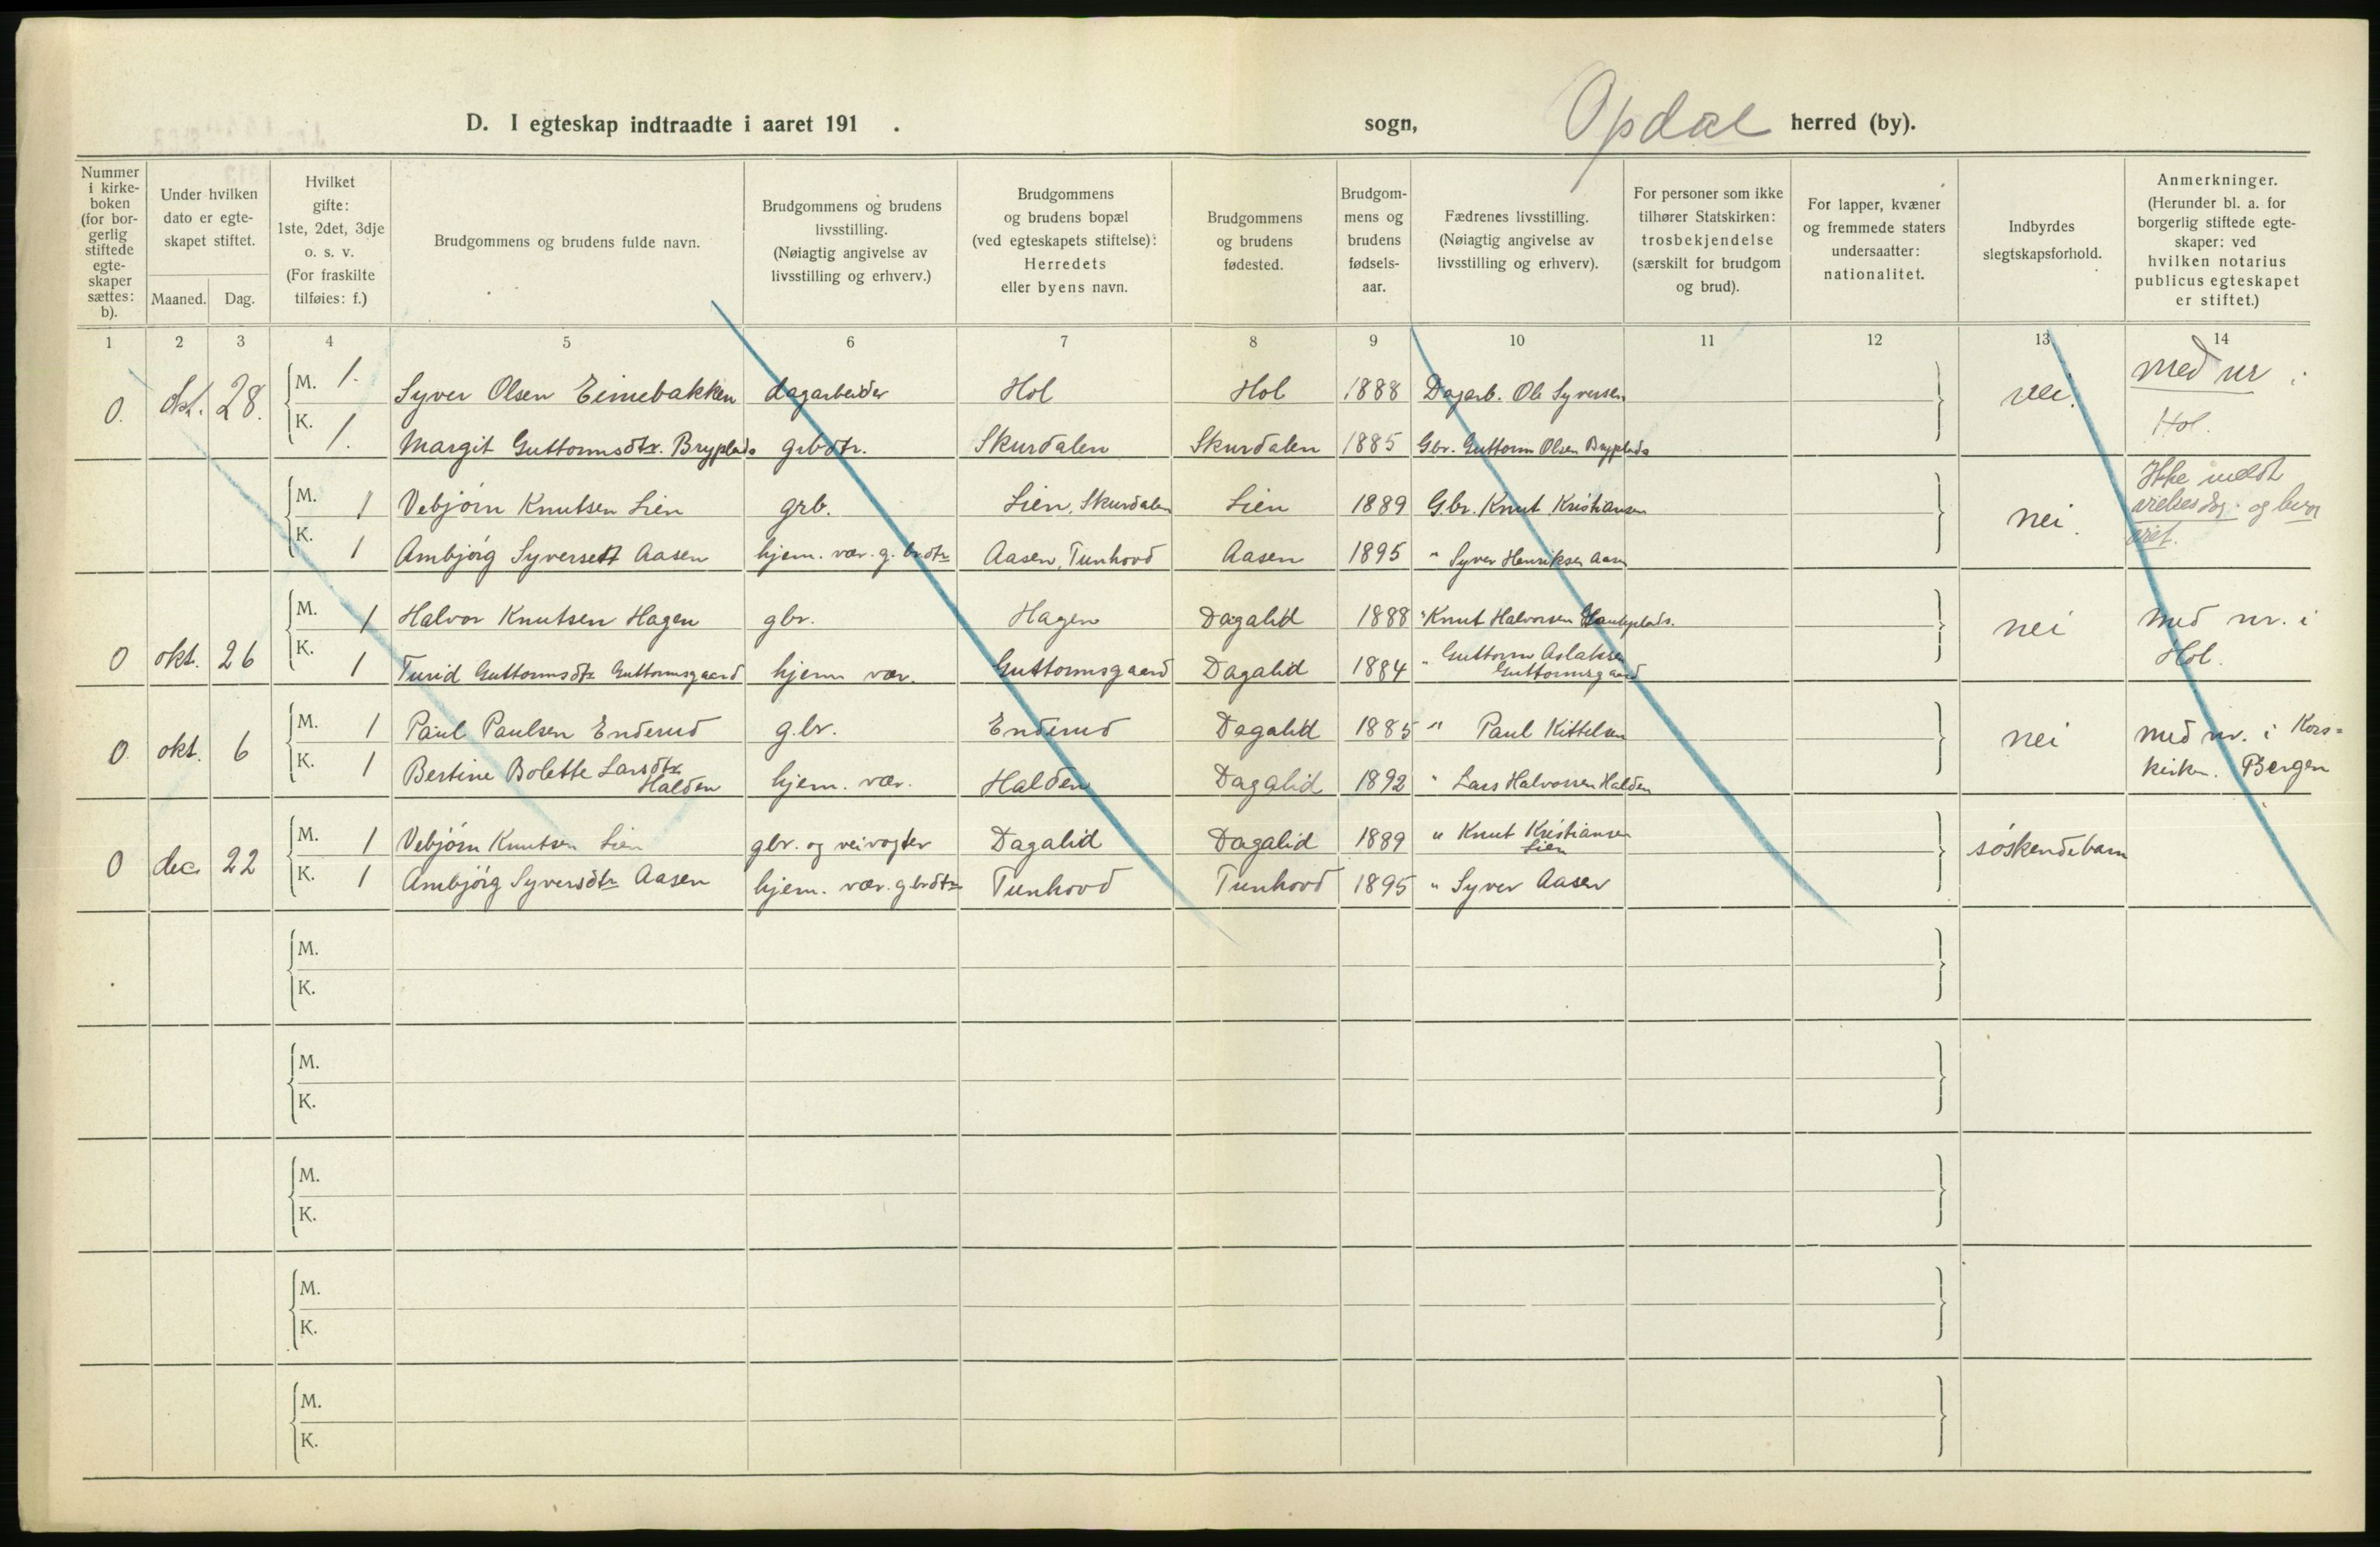 D. I egteskap indtraadte i aaret 191 . sogn, Opdal herred (by).
Nummer i kirke-boken (for bor-gerlig stiftede egte-skaper sættes: b).
Under hvilken dato er egte-skapet stiftet.
Maaned. Dag.
Hvilket gifte: 1ste, 2det, 3dje o. s. v. (For fraskilte tilføies: f.)
Brudgommens og brudens fulde navn.
Brudgommens og brudens livsstilling. (Nøiagtig angivelse av livsstilling og erhverv.)
Brudgommens og brudens bopæl (ved egteskapets stiftelse): Herredets eller byens navn.
Brudgommens og brudens fødested.
Brudgom-mens og brudens fødsels-aar.
Fædrenes livsstilling. (Nøiagtig angivelse av livsstilling og erhverv).
For personer som ikke tilhører Statskirken: trosbekjendelse (særskilt for brudgom og brud).
For lapper, kvæner og fremmede staters undersaatter: nationalitet.
Indbyrdes slegtskapsforhold.
Anmerkninger. (Herunder bl. a. for borgerlig stiftede egte-skaper: ved hvilken notarius publicus egteskapet er stiftet.)
1 2 3 4 5 6 7 8 9 10 11 12 13 14
0. Okt. 28. M. 1. Syver Olsen Eimebakken dagarbeider Hol Hol 1888 Dagarb. Ole Syversen nei. med nr i Hol.
K. 1. Margit Guttormsdtr. Bryplads grbdtr. Skurdalen Skurdalen 1885 Gbr. Guttorm Olsen Bryplads
M. 1 Vebjørn Knutsen Lien grb. Lien, Skurdalen Lien 1889 G.br. Knut Kristiansen nei. Ikke meldt vielsesdag og
K. 1 Ambjørg Syversett Aasen hjem. vær. g. br.dtr Aasen, Tunhovd Aasen 1895 " Syver Henriksen Aasen
M. 1 Halvor Knutsen Hagen gbr. Hagen Dagalid 1888 " Knut Halvorsen nei med nr. i Hol.
0 okt. 26 K. 1 Turid Guttormsdtr Guttormsgaard hjem vær. Guttormsgaard Dagalid 1884 " Guttorm Aslaksen Guttormsgaard
0 okt. 6 M. 1 Paul Paulsen Enderud g.br. Enderud Dagalid 1885 " Paul Kittelsen nei med nr. i Kors=kirken. Bergen
K. 1 Bertine Bolette Larsdtr Halden hjem. vær. Halden Dagalid 1892 " Lars Halvorsen Halden
0 dec. 22 M. 1 Vebjørn Knutsen Lien gbr. og veivogter Dagalid Dagalid 1889 " Knut Kristiansen Lien søskendebarn
K. 1 Ambjørg Syversdtr Aasen hjem. vær. gbrdtr Tunhovd Tunhovd 1895 " Syver Aasen
M.
K.
M.
K.
M.
K.
M.
K.
M.
K.